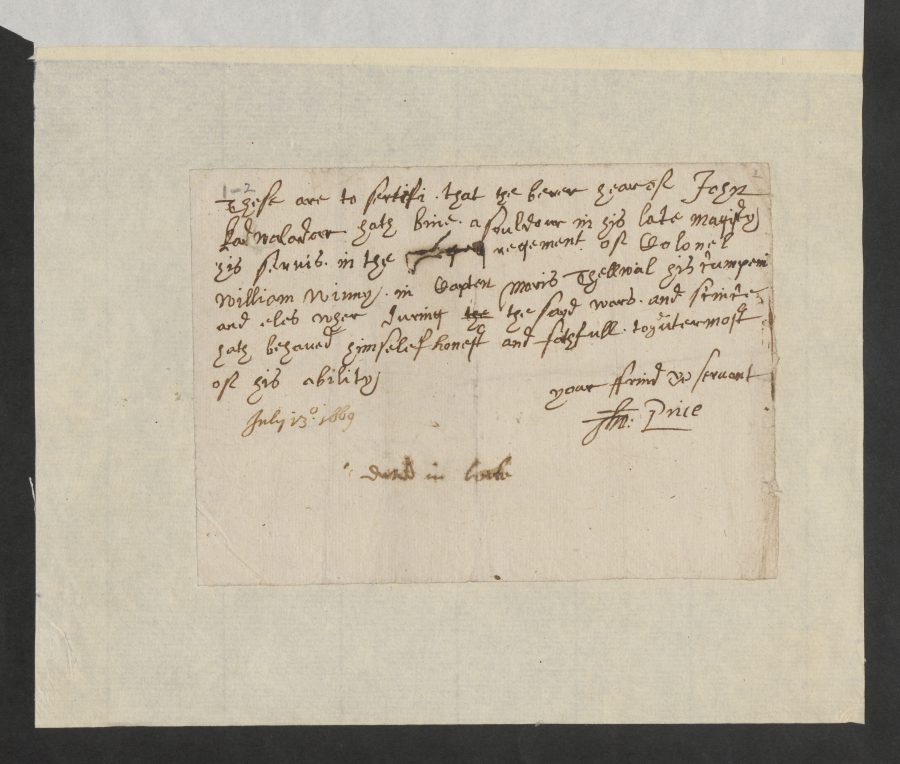 1-2
2
These are to sertifi that the berer hearof John
Kadwalader hath bine a souldour in his late Magisty
his servis in the regement of Colonel
William Winny in Capten Moris Thellwal his cumpeni
and eles wher during the the sayd wars and scince
hath behaved himselef honest and fathfull to ye utermost
of his ability
your ffrind & servant
July 13o: 1669
Jhn: Price
in